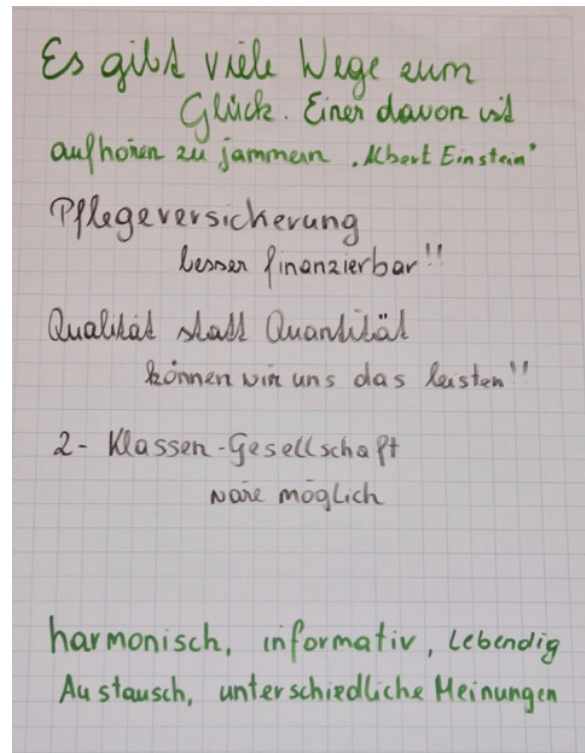 Es gibt viele Wege zum
Glück. Einer davon ist
aufhören zu jammern. "Albert Einstein"
Pflegeversicherung
besser finanzierbar!!
Qualität statt Quantität
können wir uns das leisten!!
2-Klassen-Gesellschaft
wäre möglich
harmonisch, informativ, Lebendig
Austausch, unterschiedliche Meinungen